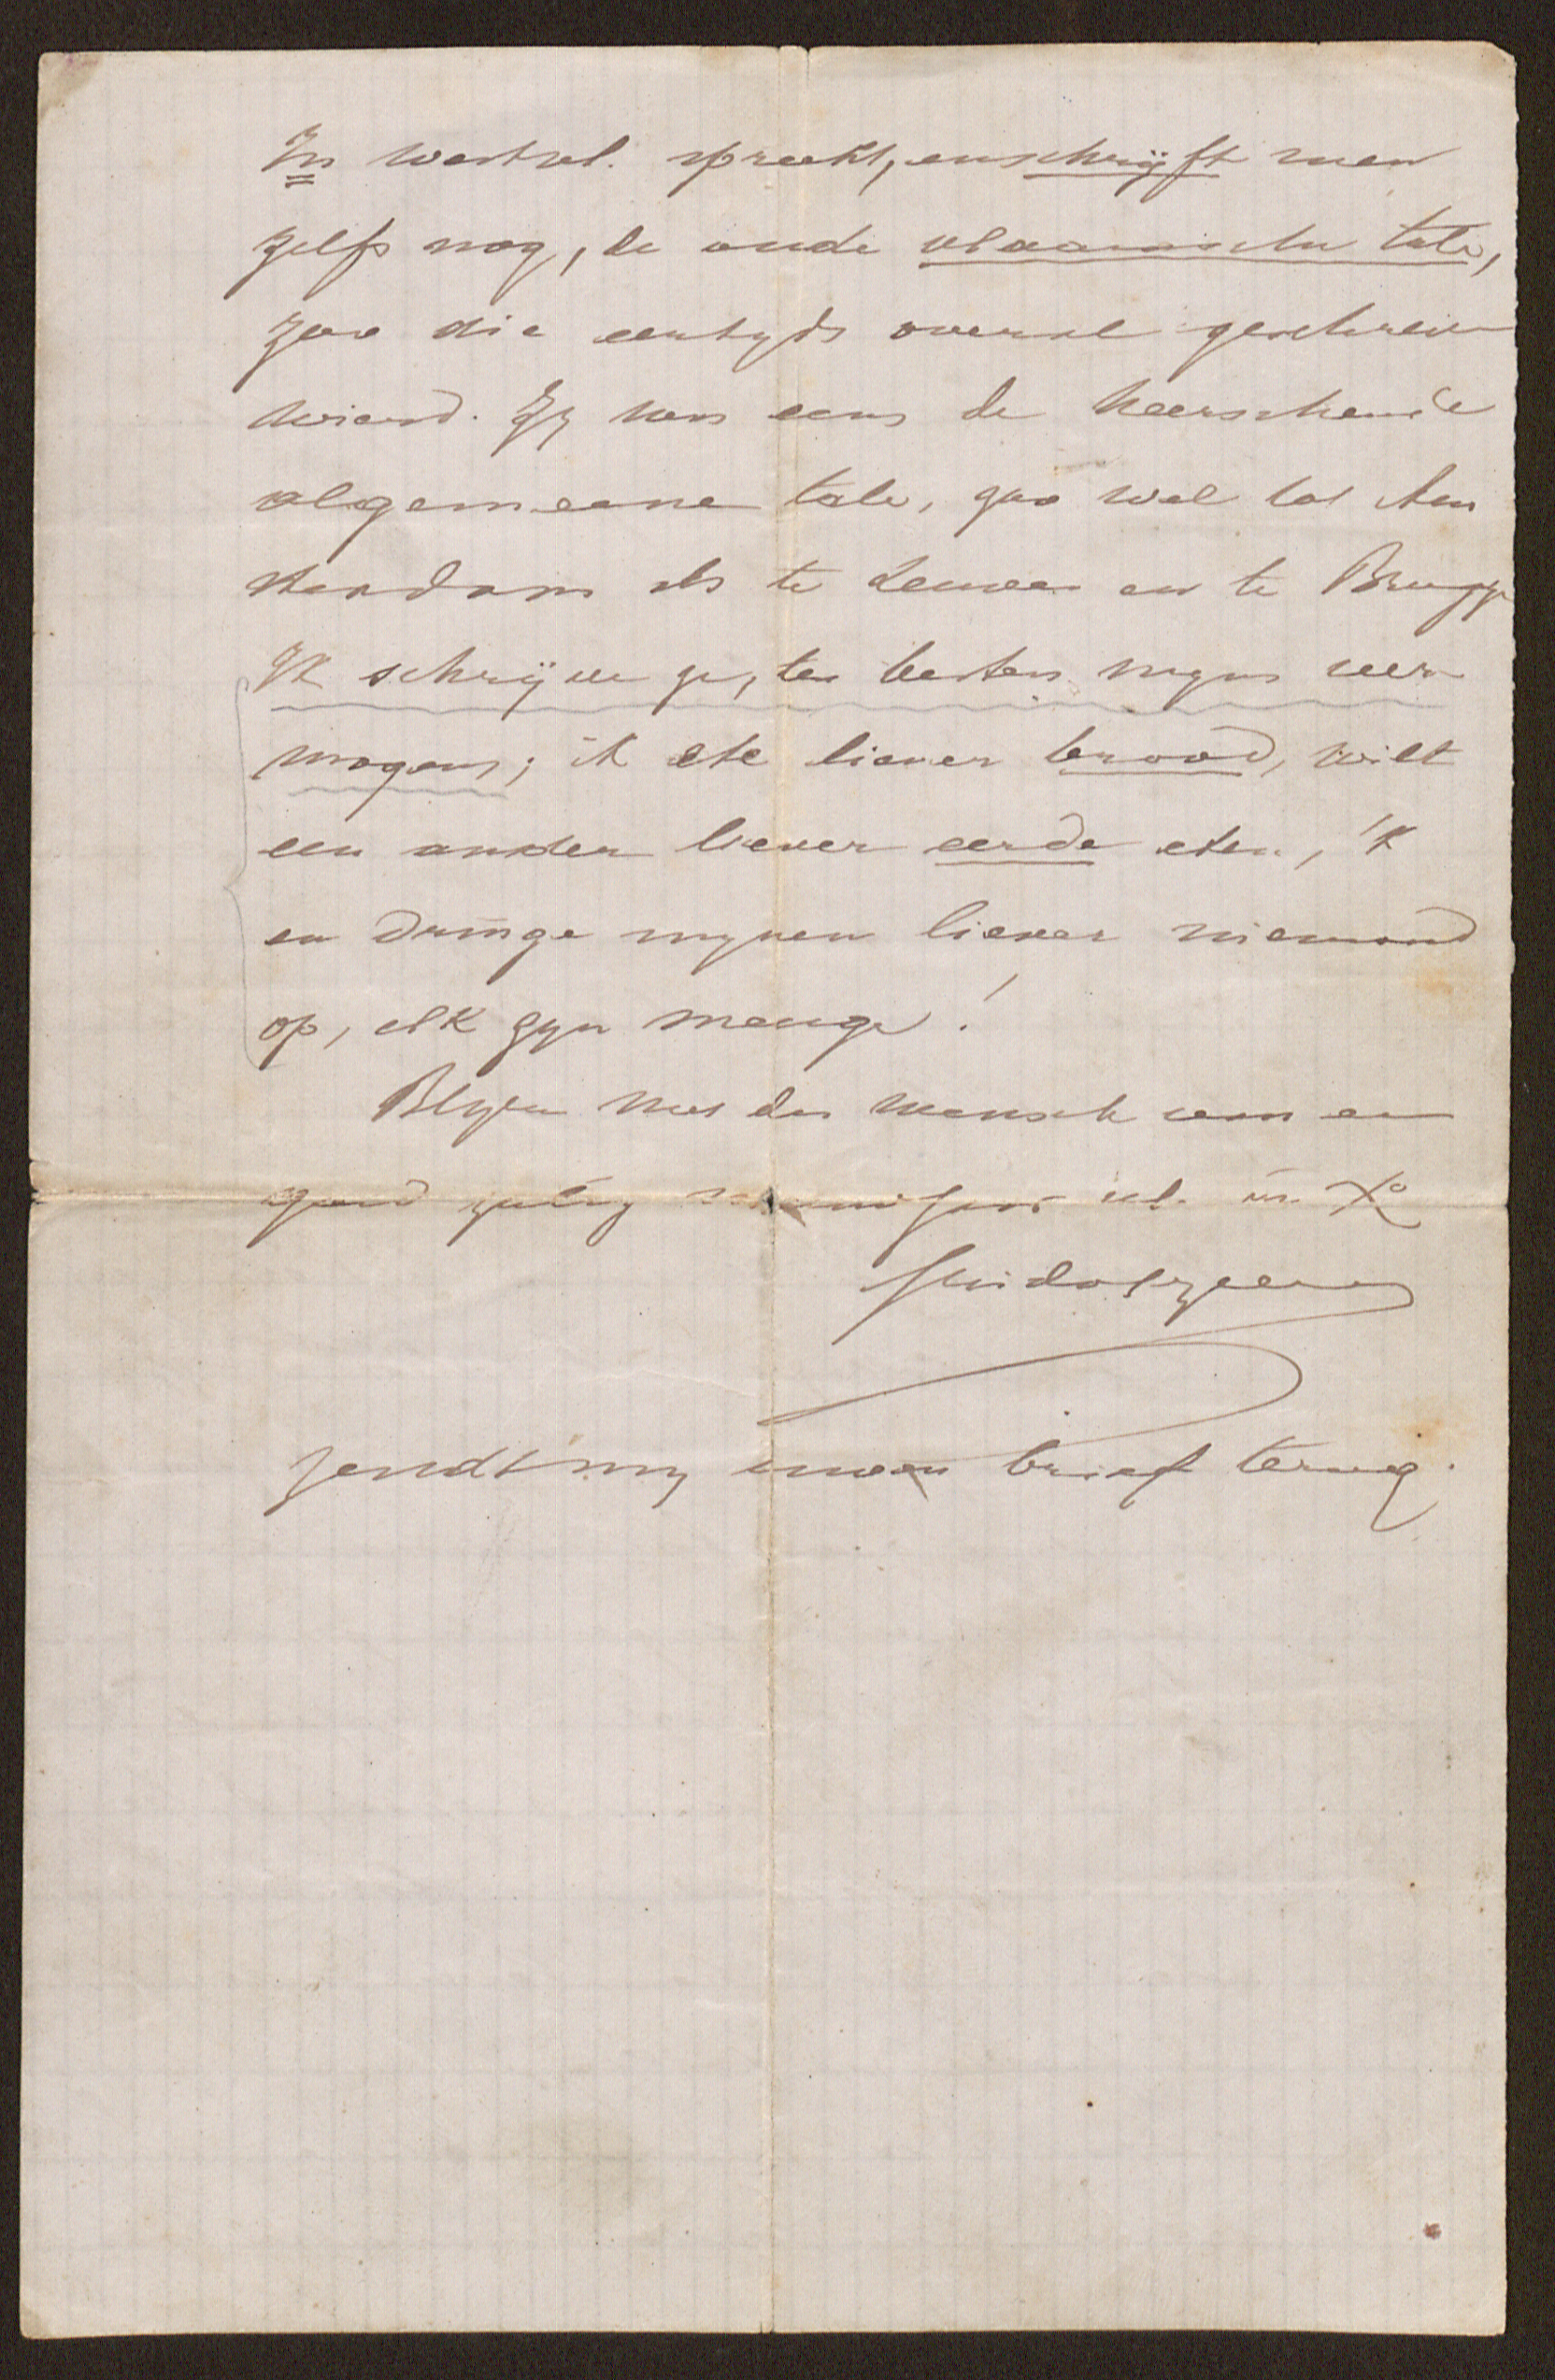 In westvl. spreekt, en schrijft men
zelfs nog, de oude vlaamsche tale,
zoo die eertyds overal geschreven
wierd. Zy was eens de heerschende
algemeene tale, zoo wel tot Am
sterdam als te Leuven en te Brugge
Ik schrijve ze, ten besten myns ver
mogens; ik ete liever brood, wilt
een ander liever eerde eten, 'k
en dringe mynen liever niemand
op, elk zyn meuge!
Blyve met der mensch van een
goed zalig in Xo
Guido Gezelle
Zendt my uwen brief terug.